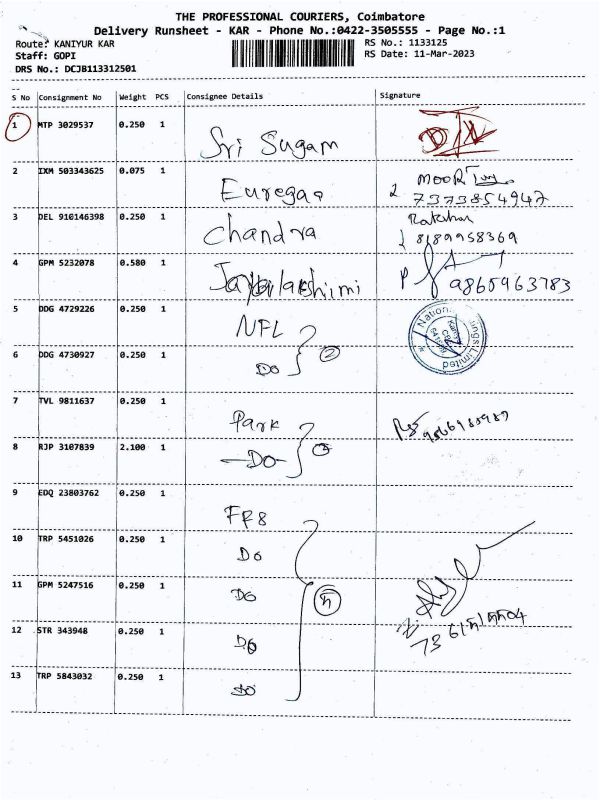 THE PROFESSIONAL COURIERS, Coimbatore
Delivery Runsheet - KAR - Phone No.:0422-3505555 - Page No.:1
Route: KANIYUR KAR
RS No.: 1133125
Staff: GOPI
RS Date: 11-Mar-2023
DRS No.: DCJB113312501
S No Consignment No Weight PCS Consignee Details Signature
1 MTP 3029537 0.250 1 Sri Sugam
2 IXM 503343625 0.075 1 Euregao MOORTHY 7373854947
3 DEL 910146398 0.250 1 Chandra 8189958369
4 GPM 5232078 0.580 1 9865963783
5 DDG 4729226 0.250 1 NFL
6 DDG 4730927 0.250 1 Do 2
7 TVL 9811637 0.250 1 Park
8 RJP 3107839 2.100 1 -Do-
9 EDQ 23803762 0.250 1 FR8
10 TRP 5451026 0.250 1 Do
11 GPM 5247516 0.250 1 Do
12 STR 343948 0.250 1 Do
13 TRP 5843032 0.250 1 Do